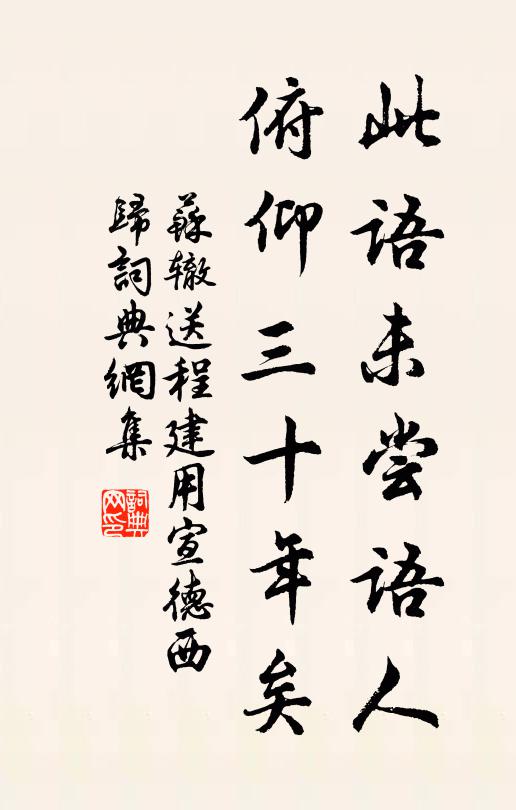 此语未尝语人
俯仰三十年矣
蘇辙送程建用宣德西
歸詞典網集
詞典
网印